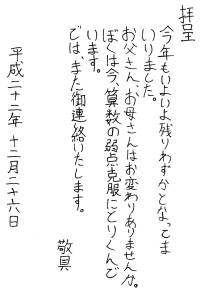 拝呈
今年もいよいよ残りわずかとなってま
いりました。
お父さん、お母さんはお変わりありませんか。
ぼくは今、算数の弱点克服にとりくんで
います。
では、また御連絡いたします。
敬具
平成二十二年 十二月二十六日